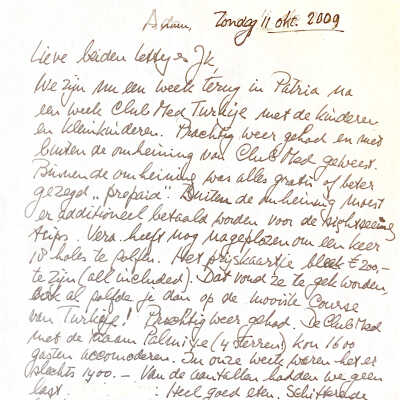 A'dam, Zondag 11 okt. 2009
Lieve beiden
We zijn nu een week terug in Patria na
een week Club Med Turkije met de kinderen
en kleinkinderen. Prachtig weer gehad en niet
buiten de omheining van Club Med geweest.
Binnen de omheining was alles gratis of beter
gezegd "prepaid". Buiten de omheining moest
er additioneel betaald worden voor de sightseeing
trips. Vera heeft nog nageplozen om een keer
18 holes te golfen. Het prijskaartje bleek € 200,-
te zijn (all included). Dat vond ze te gek worden,
ook al golfde je dan op de mooiste Course
van Turkije! Prachtig weer gehad. De Club Med
met de naam Palmiye (4 sterren) kon 1600
gasten accomoderen. In onze week waren het er
slechts 1400.- Van de aantallen hadden we geen
last. : Heel goed eten. Schitterende